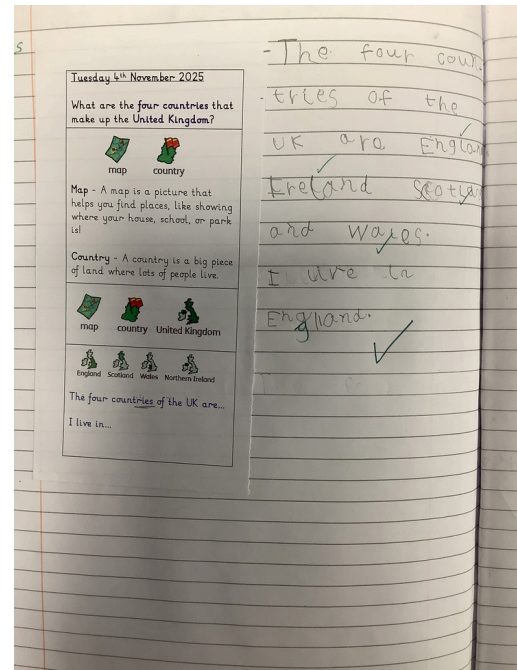 s
Tuesday 4th November 2025
What are the four countries that
make up the United Kingdom?
map country
Map - A map is a picture that
helps you find places, like showing
where your house, school, or park
is!
Country - A country is a big piece
of land where lots of people live.
map country United Kingdom
England Scotland Wales Northern Ireland
The four countries of the UK are...
I live in...
- The four coun
- tries of the
UK are Englan
Ireland Scotlan
and Wales.
I live in
England.